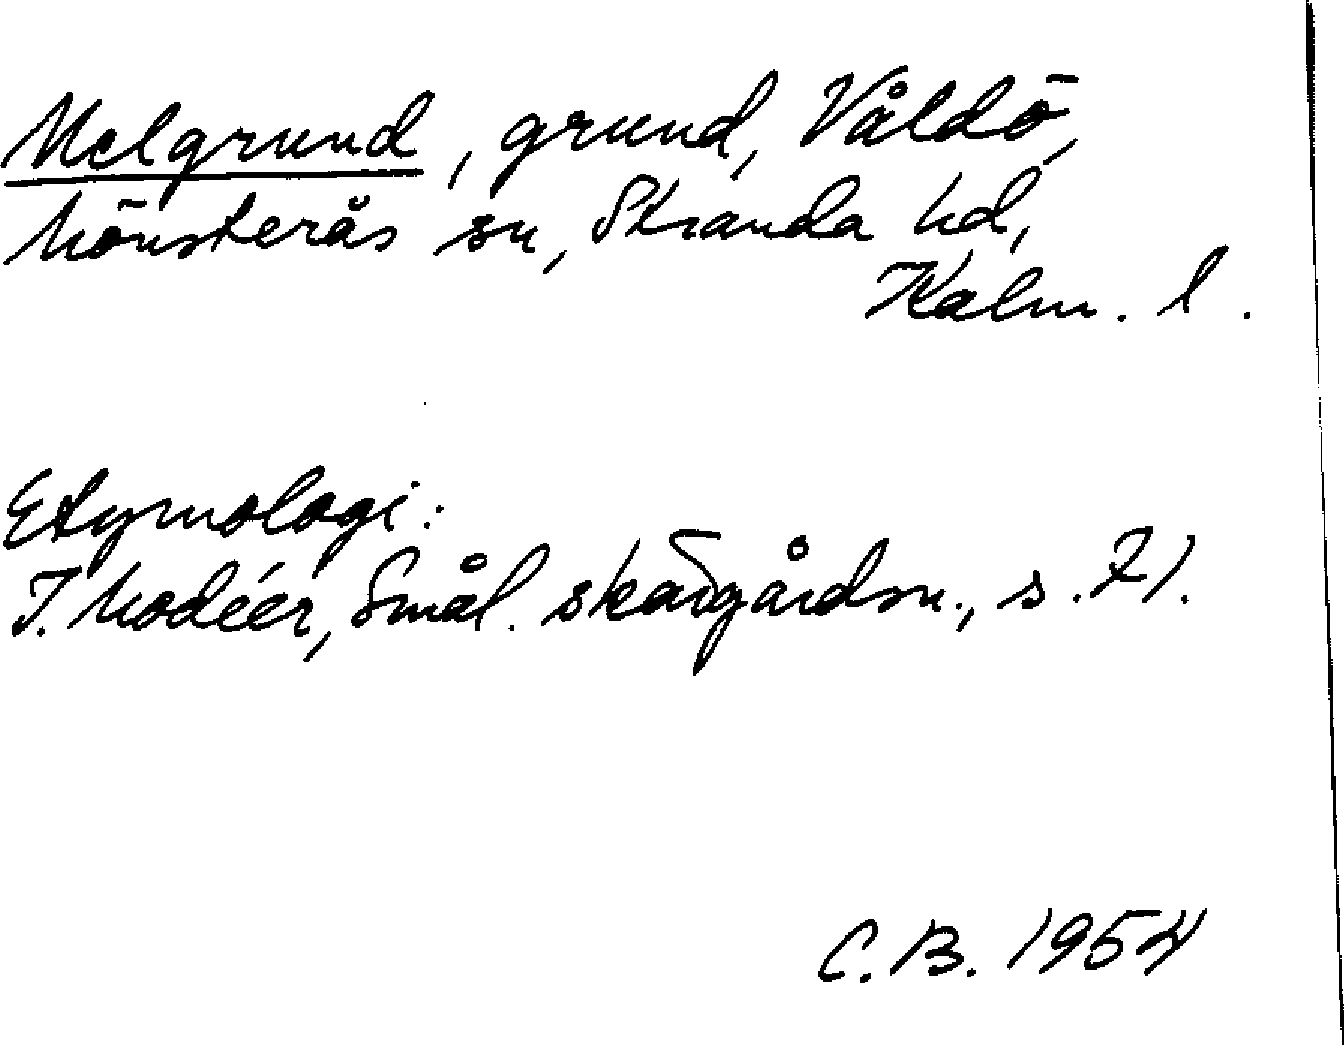 Melgrund, grund, Våldö,
Mönsterås sn, Stranda hd,
Kalm. l.
Etymologi:
I. Modéer, Smål. skärgårdsn., s. 71.
C.B. 1954